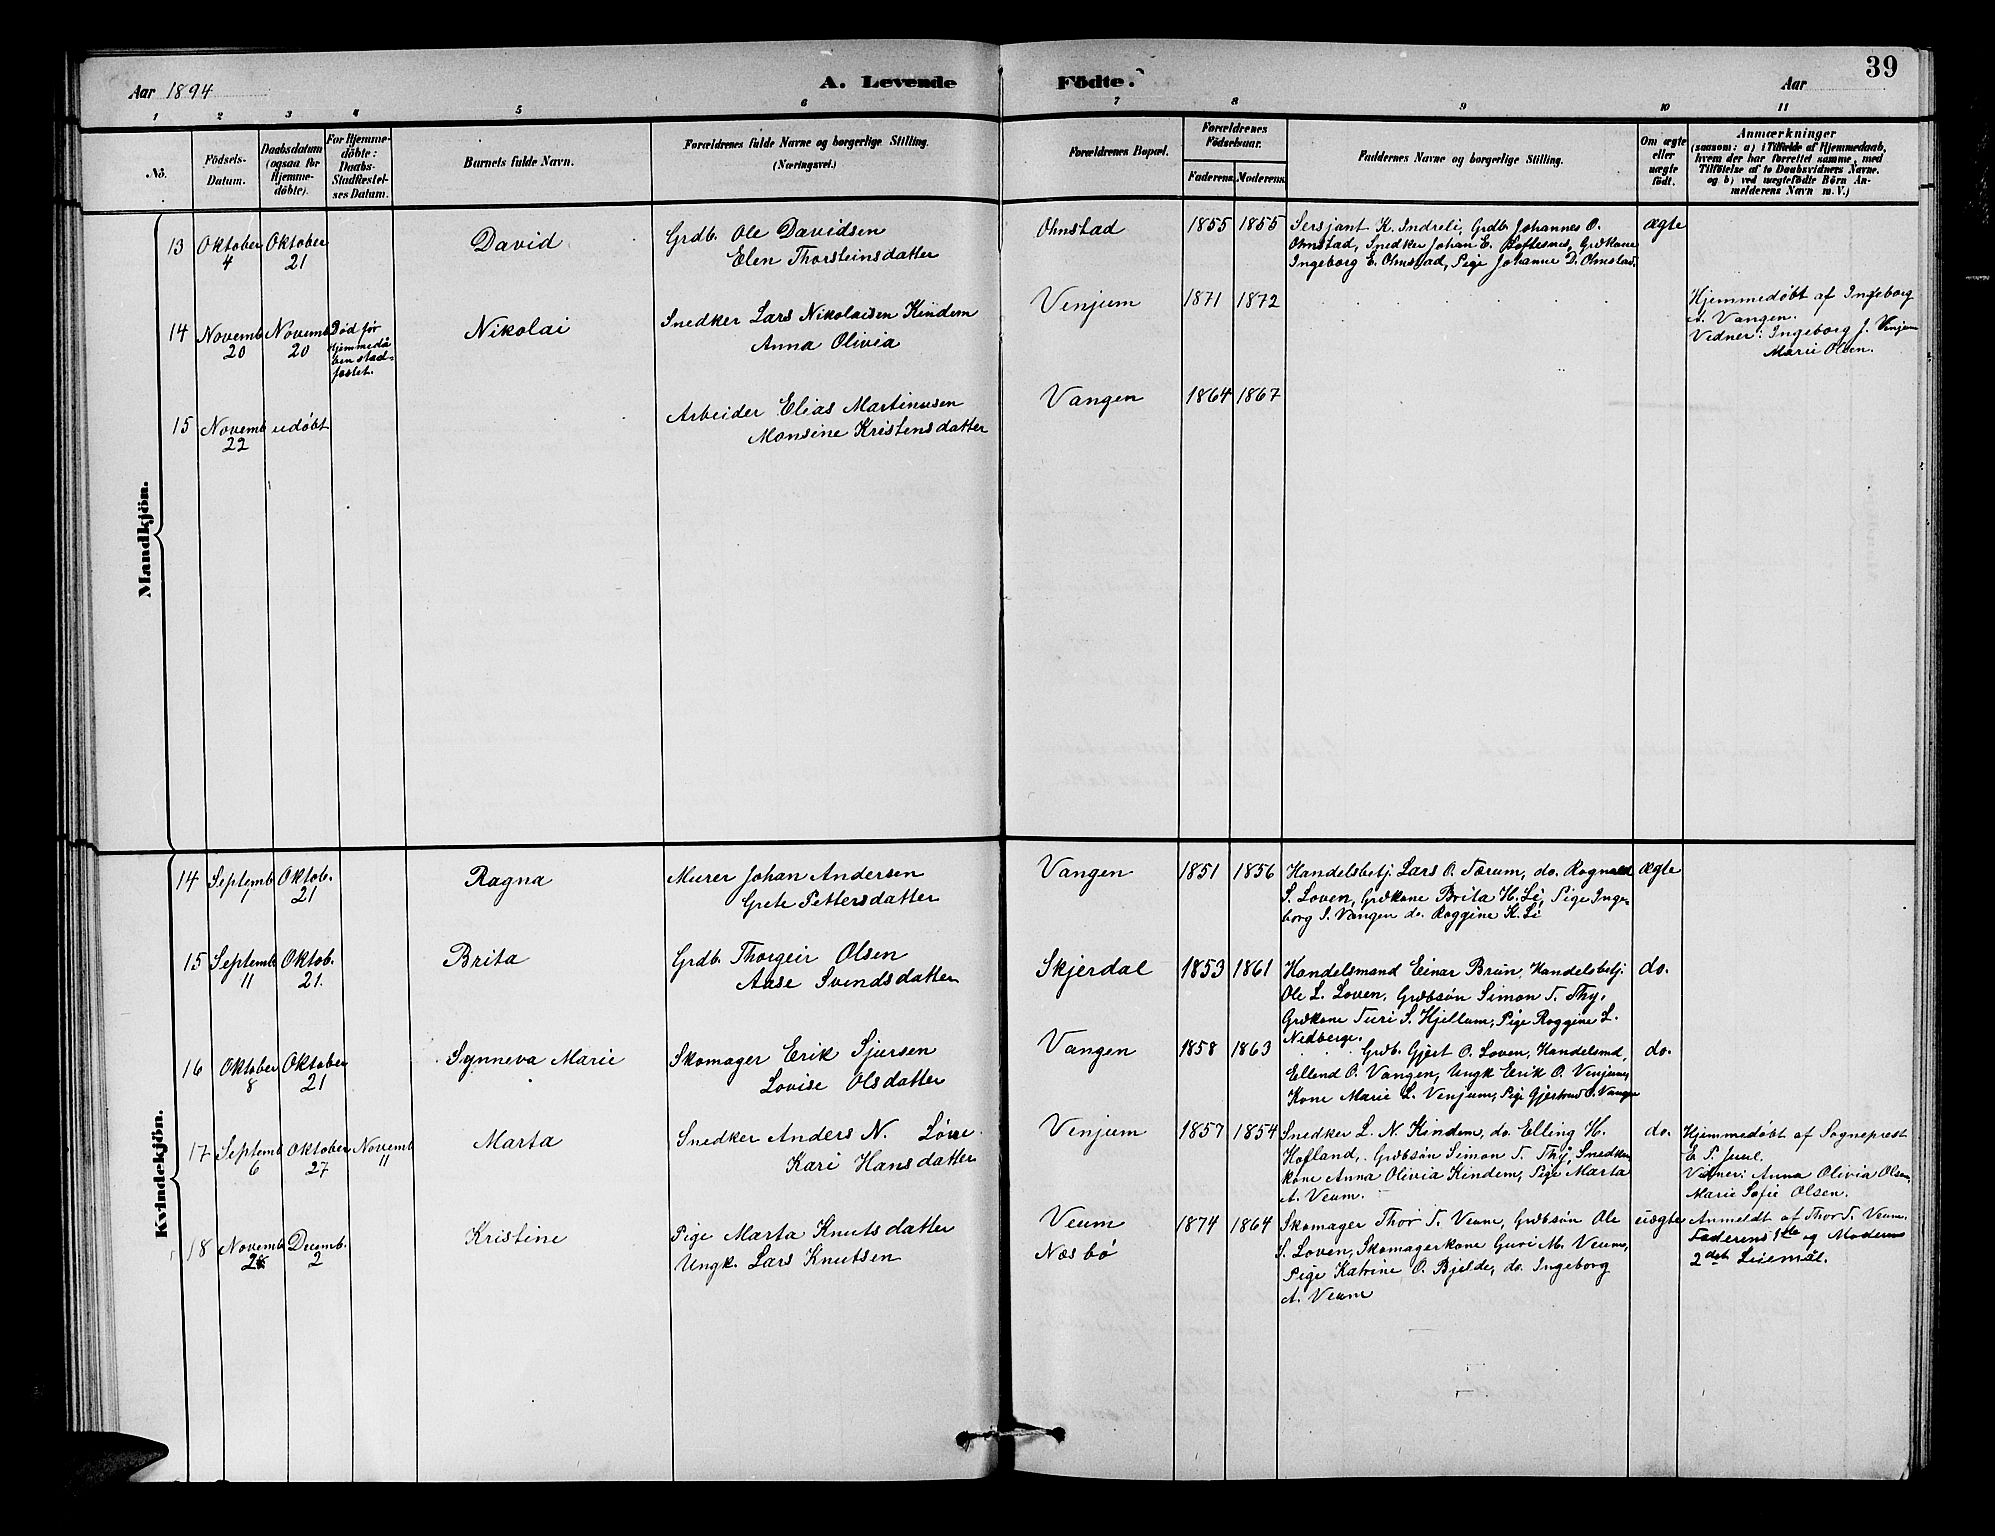 39
Aar 1894
A. Levende
Födte.
Aar
1 2 3 4 5 6 7 8 9 10 11
No.
Födsels-
Datum.
Daabsdatum
(ogsaa for
Hjemme-
döbte).
For Hjemme-
döbte:
Daabs-
Stadfæstel-
ses Datum.
Barnets fulde Navn.
Forældrenes fulde Navne og borgerlige Stilling.
(Næringsvei.)
Forældrenes Bopæl.
Forældrenes
Födselsaar.
Faderens. Moderens.
Faddernes Navne og borgerlige Stilling.
Om ægte
eller
uægte
födt.
Anmærkninger
(saasom: a) i Tilfælde af Hjemmedaab,
hvem der har forrettet samme, med
Tilföielse af to Daabsvidners Navne.
og b) ved uægtefödte Börn An-
melderens Navn m. V.)
Mandkjön.
13
Oktober
4
Oktober
21
David
Grdb. Ole Davidsen
Elen Thorsteinsdatter
Ohnstad
1855 1855
Sersjant K. Indreli, Grdb. Johannes O.
Ohnstad, Snedker Johan E. Loftesnes, Grdkone
Ingeborg E. Ohnstad, Pige Johanne D. Ohnstad.
ægte
14
Novemb
20
Novemb
20
Død før
Hjemmedå
ben stad-
fæstet.
Nikolai
Snedker Lars Nikolaisen Kindem
Anna Olivia
Venjum
1871 1872
Hjemmedøbt af Ingeborg
A. Vangen.
Vidner: Ingeborg J. Venjum
Marie Olsen.
15
Novemb
22
udøbt
Arbeider Elias Martinusen
Monsine Kristensdatter
Vangen
1864 1867
Kvindekjön.
14
Septemb
7
Oktob.
21
Ragna
Murer Johan Andersen
Grete Pettersdatter
Vangen
1851 1856
Handelsbetj. Lars O. Tærum, do. Rognald
S. Loven, Grdkone Brita H. Li, Pige Inge-
borg S. Vangen do. Roggine K. Li
ægte
15
Septemb
11
Oktob.
21.
Brita
Grdb. Thorgeir Olsen
Aase Svendsdatter
Skjerdal
1853 1861
Handelsmand Einar Brun, Handelsbetj.
Ole L. Loven, Grdbsøn Simon T. Thy,
Grdkone Turi S. Hjellum, Pige Roggine L.
Nedberge.
do.
16
Oktober
8
Oktober
21
Synneva Marie
Skomager Erik Sjursen
Lovise Olsdatter
Vangen
1858 1863
Grdb. Gjert O. Loven, Handelsmd,
Ellend O. Vangen, Ungk Erik O. Venjum,
Kone Marie L. Venjum, Pige Gjertrud O. Vangen
do.
17
Septemb
6
Oktober
27
Novemb
11
Marta
Snedker Anders N.
Kari Hansdatter
Venjum
1857 1854
Snedker L. N. Kindem, do. Elling H.
Hofland, Grdbsøn Simon T. Thy, Snedker
kone Anna Olivia Kindem, Pige Marta
A. Veum.
do.
Hjemmedøbt af Sogneprest
E. T. Juul.
Vidner: Anna Olivia Olsen,
Marie Sofie Olsen.
18
Novemb
Decemb.
2
Kristine
Pige Marta Knutsdatter
Ungk. Lars Knutsen
Veum
Næsbø
1874 1864
Skomager Thor T. Veum, Grdbsøn Ole
S. Loven, Skomagerkone Guri M. Veum,
Pige Katrine O. Bjelde, do. Ingeborg
A. Veum
uægte
Anmeldt af Thor T. Veum.
Faderens 1ste og Moderens
2det Leiemål.